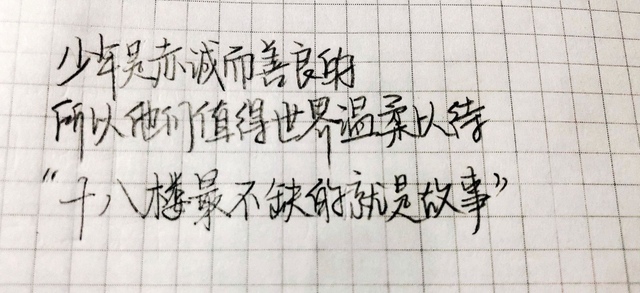 少年是赤诚而善良的
所以他们值得世界温柔以待
“十八楼最不缺的就是故事”